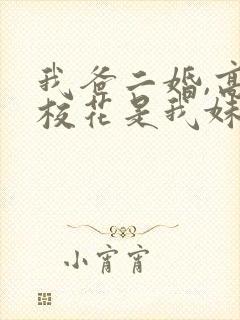 我爸二婚,高
校花是我妹
小宵宵